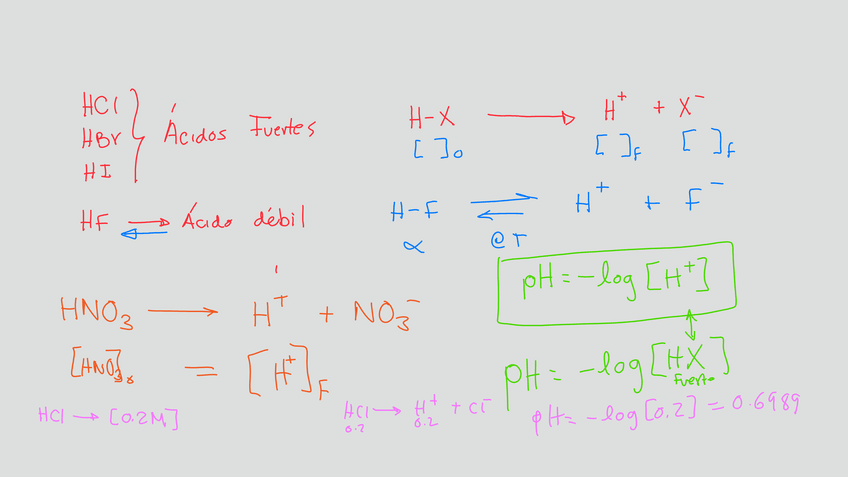 HCl
HBr
HI
Ácidos Fuertes
HF ⇄ Ácido débil
H-X → H⁺ + X⁻
[ ]₀ [ ]F [ ]F
H-F ⇌ H⁺ + F⁻
α @T
pH = -log [H⁺]
HNO₃ → H⁺ + NO₃⁻
[HNO₃]₀ = [H⁺]F
pH = -log [HX]
Fuerte
HCl → [0.2M]
HCl → H⁺ + Cl⁻
0.2 0.2
pH = -log [0.2] = 0.6989